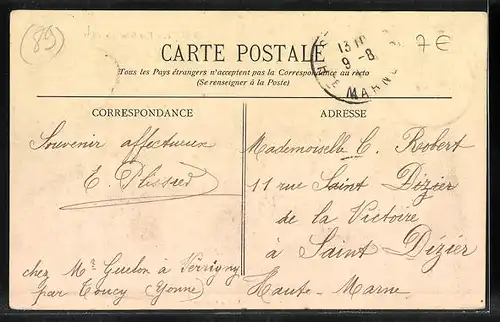 (89)
7€
CARTE POSTALE
Tous les Pays étrangers n'acceptent pas la Correspondance au recto
(Se renseigner à la Poste)
13
9-8
MARNE
CORRESPONDANCE
Souvenir affectueux
E. Plissier
chez Mr Guelon à Verrigny
par Toucy (Yonne)
ADRESSE
Mademoiselle C. Robert
11 rue Saint Dizier
de la Victoire
à Saint Dizier
Haute-Marne